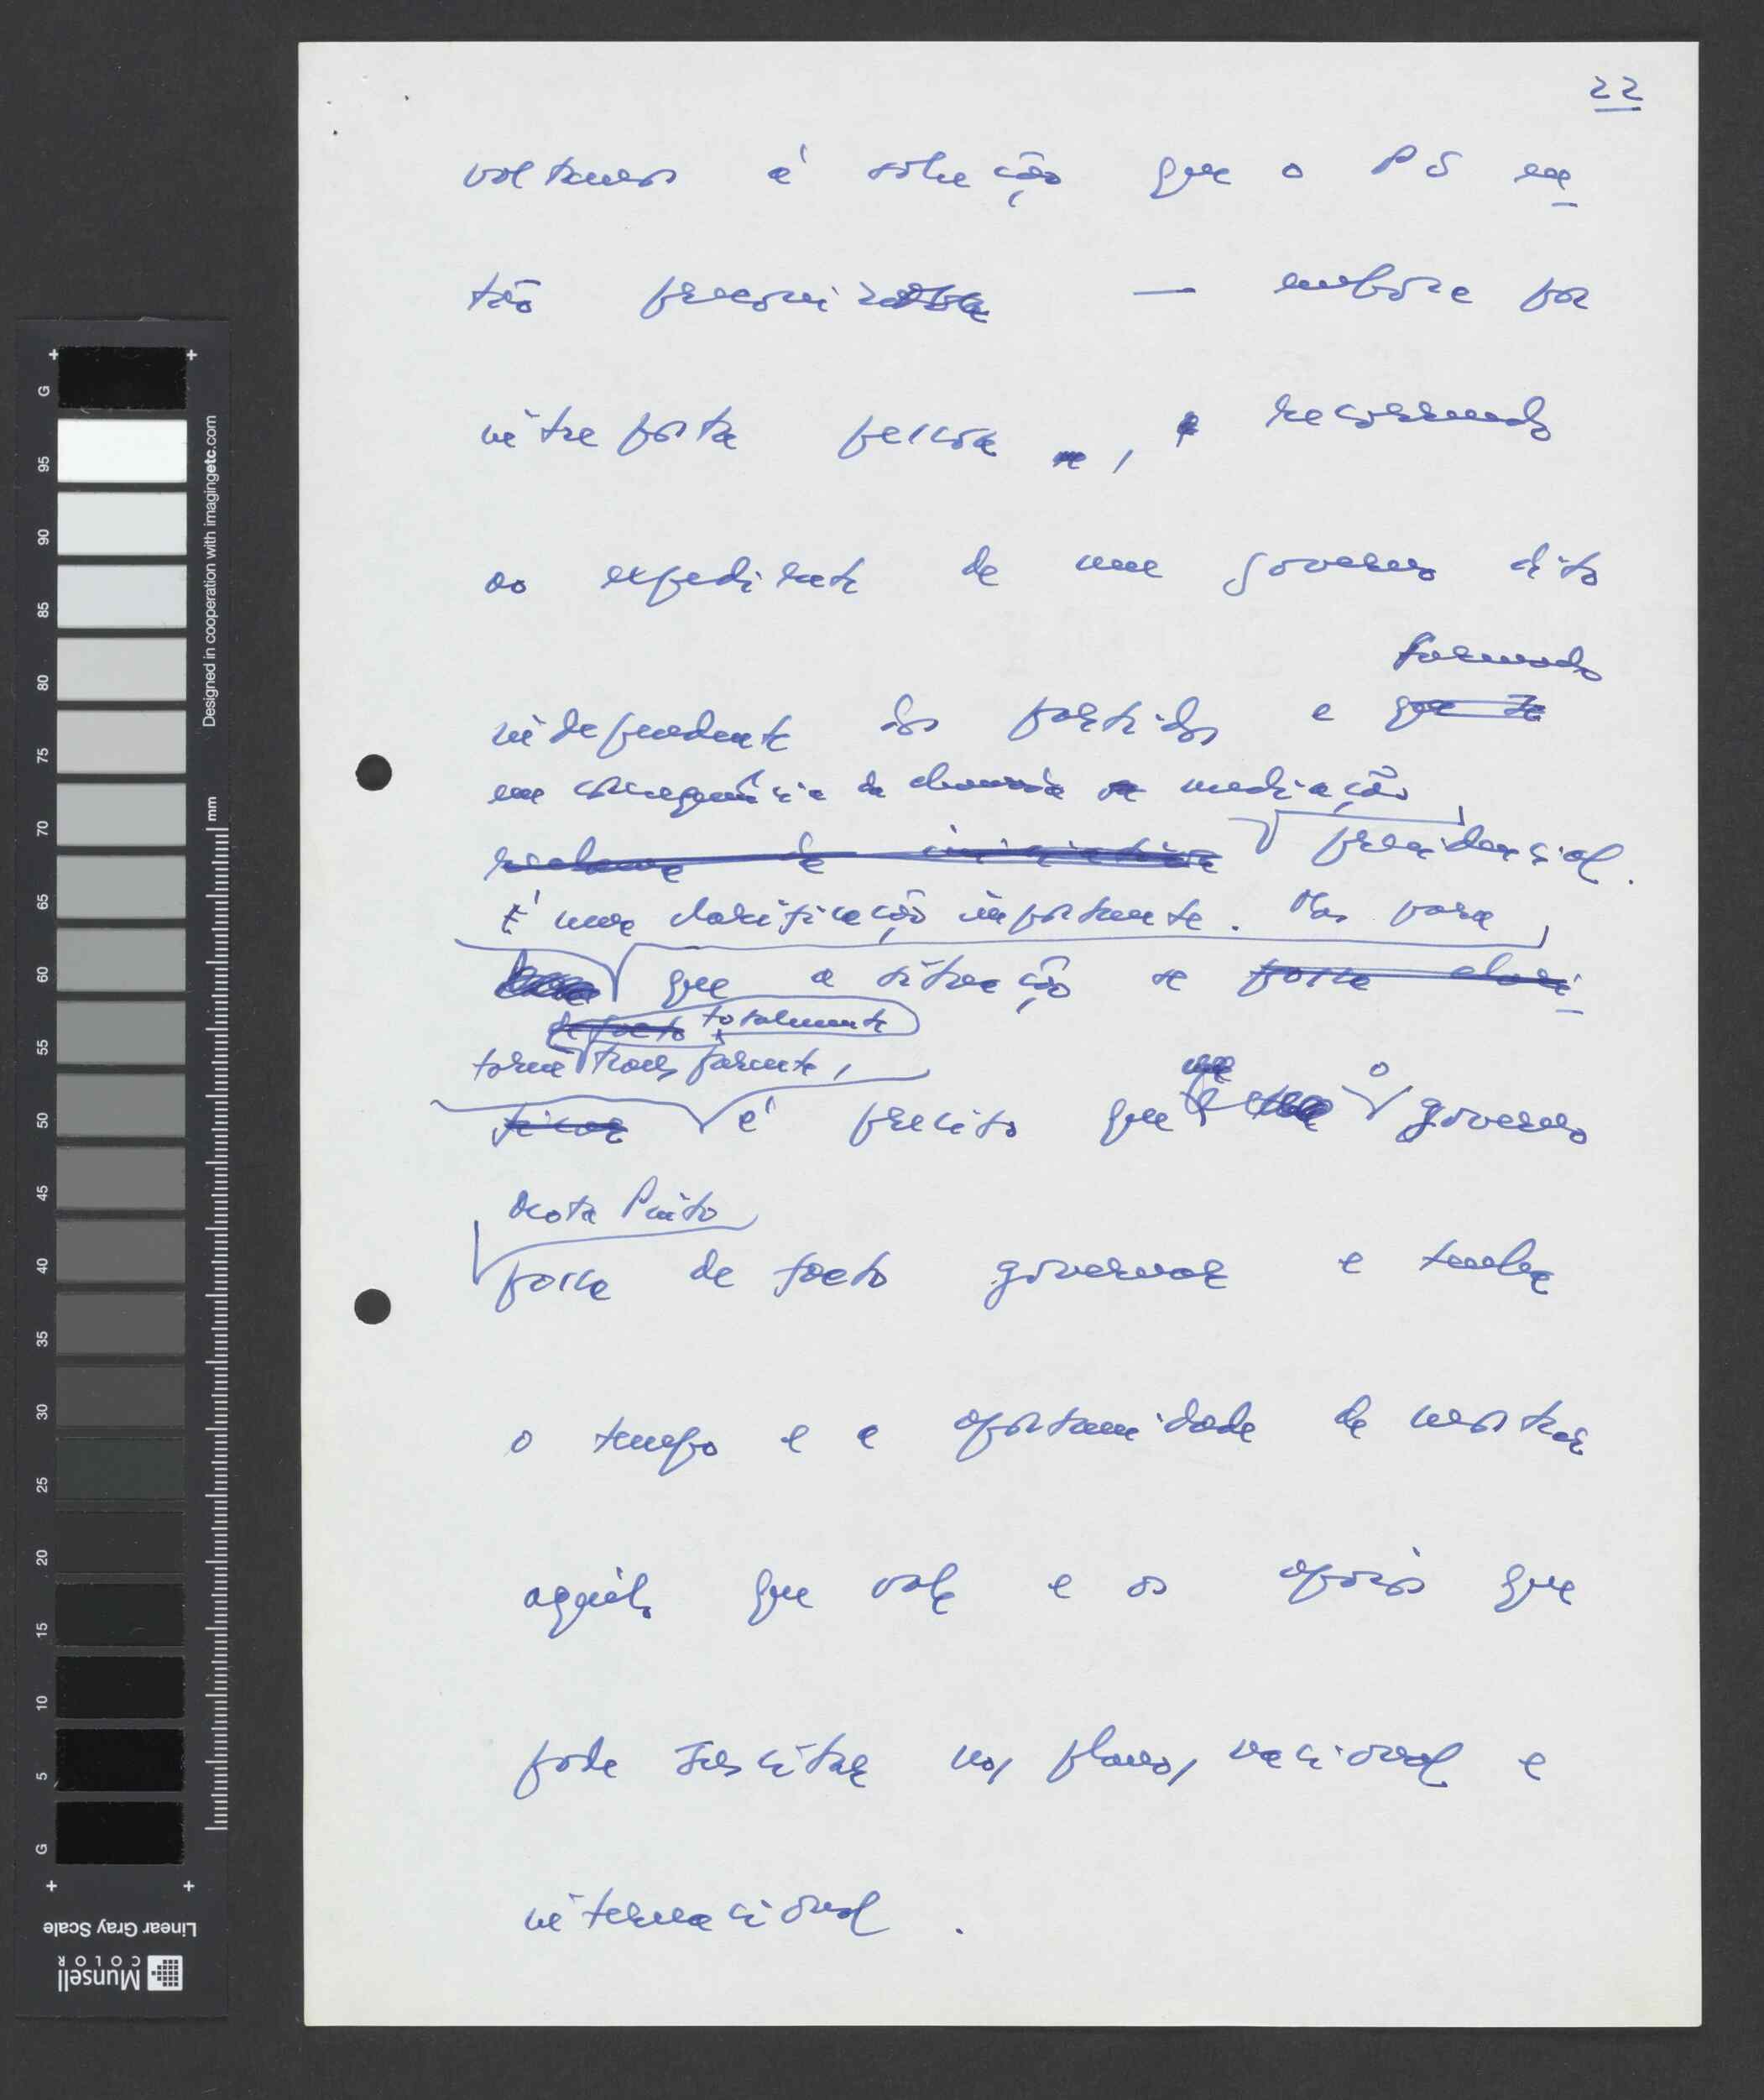 22
voltamos à solução que o PS en
tão preconizava — embora por
interposta pessoa, recorrendo
ao expediente de um governo dito
formado
independente dos partidos e que te
em consequência da chamada mediação
resahou de iniciativa presidencial.
É uma clarificação importante. Mas para
que a situação se possa clari
de facto totalmente
torne transparente,
ficar é preciso que o governo
Mota Pinto
possa de facto governar e tenha
o tempo e a oportunidade de mostrar
aquilo que vale e os apoios que
pode suscitar nos planos nacional e
internacional.
G
95
90
85
80
75
70
65
60
55
50
45
40
35
30
25
20
15
10
5
G
mm
Designed in cooperation with imagingetc.com
Linear Gray Scale
Munsell
COLOR